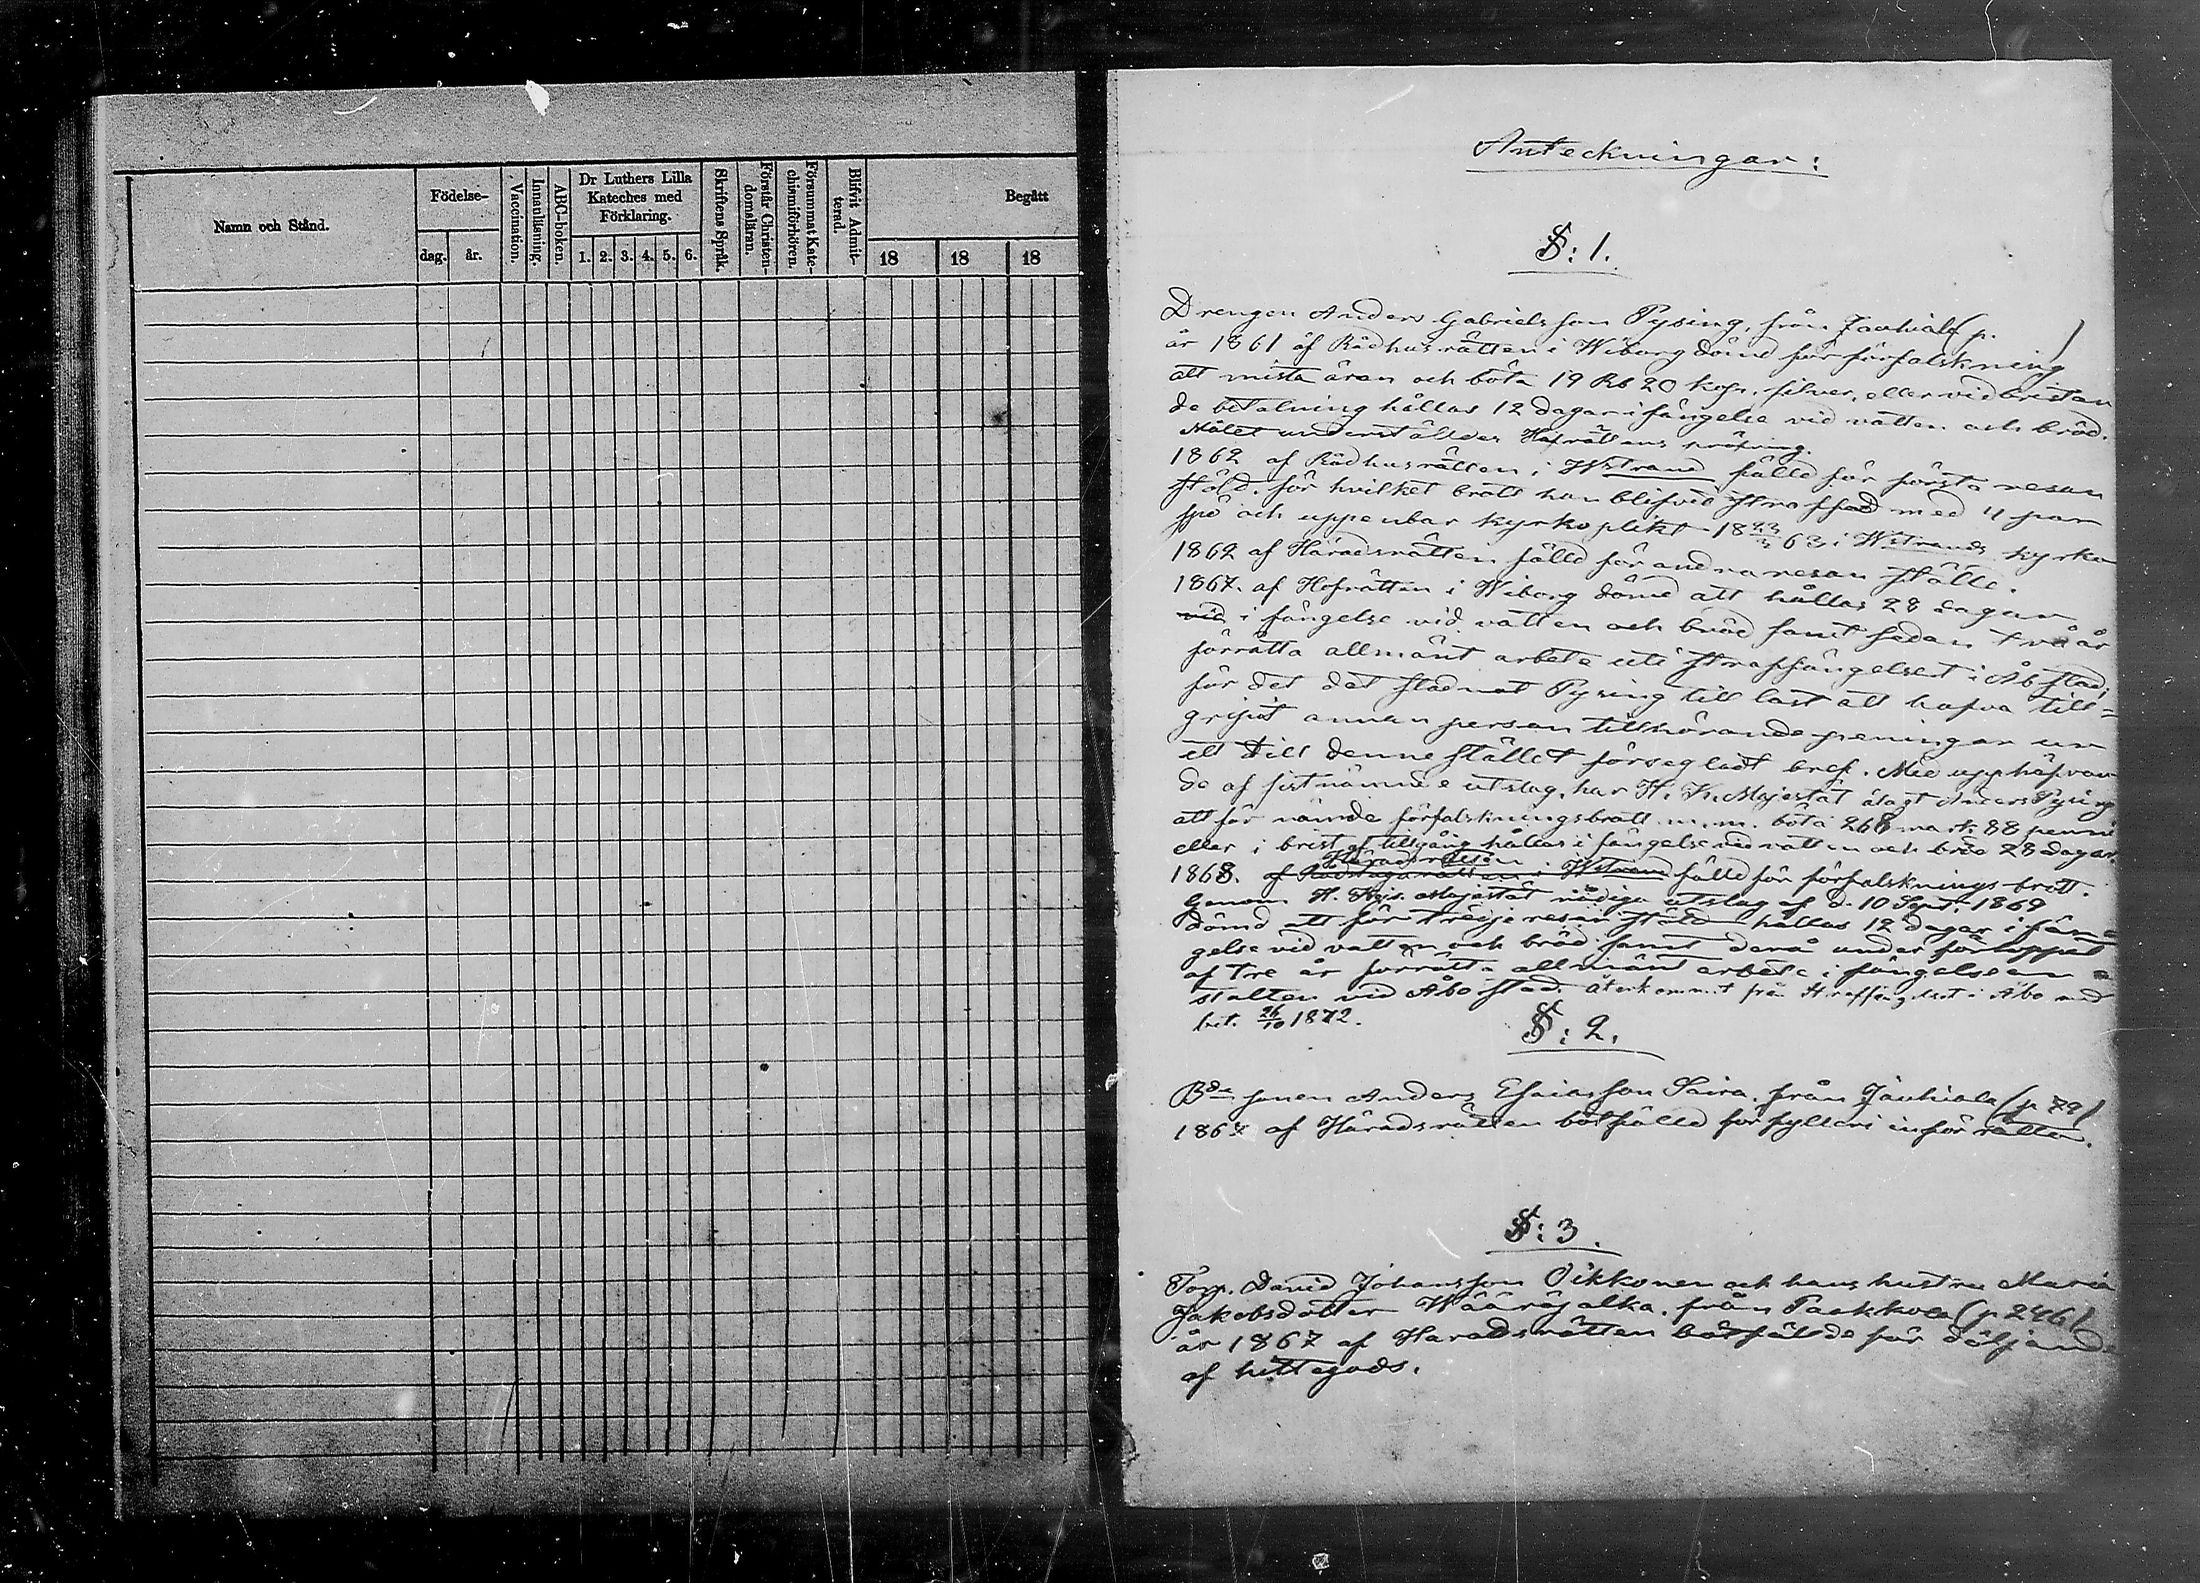 Namn och Stånd.
Födelse-
dag.
år.
Vaccination.
Innanläsning.
ABC-boken.
Dr Luthers Lilla
Kateches med
Förklaring.
1. 2. 3. 4. 5. 6.
Skriftens Språk.
Förstår Christen-
domsläran.
Försummat Kate-
chismiförhören.
Blifvit Admit-
terad.
Begått
18
18
18
Anteckningar:
§: 1.
Drengen Anders Gabrielsson Pysing, från Jauhiala (p. )
år 1861 af Rådhusrätten i Wiborg dömd för förfalskning
att mista äran och böta 19 Rb 20 kop. silver, eller vid bristan
de betalning hållas 12 dagar i fängelse vid vatten och bröd.
Målet underställdes Hofrättens pröfning.
1862 af Rådhusrätten i Wstrand fälld för första resan
stöld. för hvilket brott han blifvid straffad med 4 par
spö och uppenbar kyrkoplikt 18 23/3 63 i Wstrands kyrka
1862 af Häradsrätten fälld för andra resan stöld.
1867. af Hofrätten i Wiborg dömd att hållas 28 dagar
vid i fängelse vid vatten och bröd samt sedan två år
förrätta allmänt arbete uti straffängelset i Åbo stad,
för det det stadnat Pysing till last att hafva till=
gripit annan person tillhörande peningar ur
ett till denne stället förseglat bref. Med upphäfvan
de af sistnämnde utslag, har H. K. Majestät ålagt Anders Pysing
att för nämde förfalskningsbrott m.m. böta 268 mark 88 penni
eller i brist af tillgång hållas i fängelse vid vatten och bröd 28 dagar.
Häradsrätten
1868. af Rådstugurätten i Wstrand fälld för förfalsknings brott.
Genom H. Kejs. Majestät nådiga utslag af d. 10 Sept. 1869
dömd att för tredje resan stöld hållas 12 dagar i fän=
gelse vid vatten och bröd samt derå under förloppet
af tre år förrätta allmänt arbete i fängelse an=
stalten vid Åbo stad. återkommit från straffängelset i Åbo med
bet. 26/10 1872.
§: 2.
Bde sonen Anders Esaiasson Saira. från Jauhiala (p 79)
1867 af Häradsrätten botfälld för fylleri inför rätten.
§: 3.
Torp. David Johansson Oikkonen och hans hustru Maria
Jakobsdotter Wääräjalka. från Paakkola (p 246)
år 1867 af Haradsrätten botfällde för döljande
af hittegods.